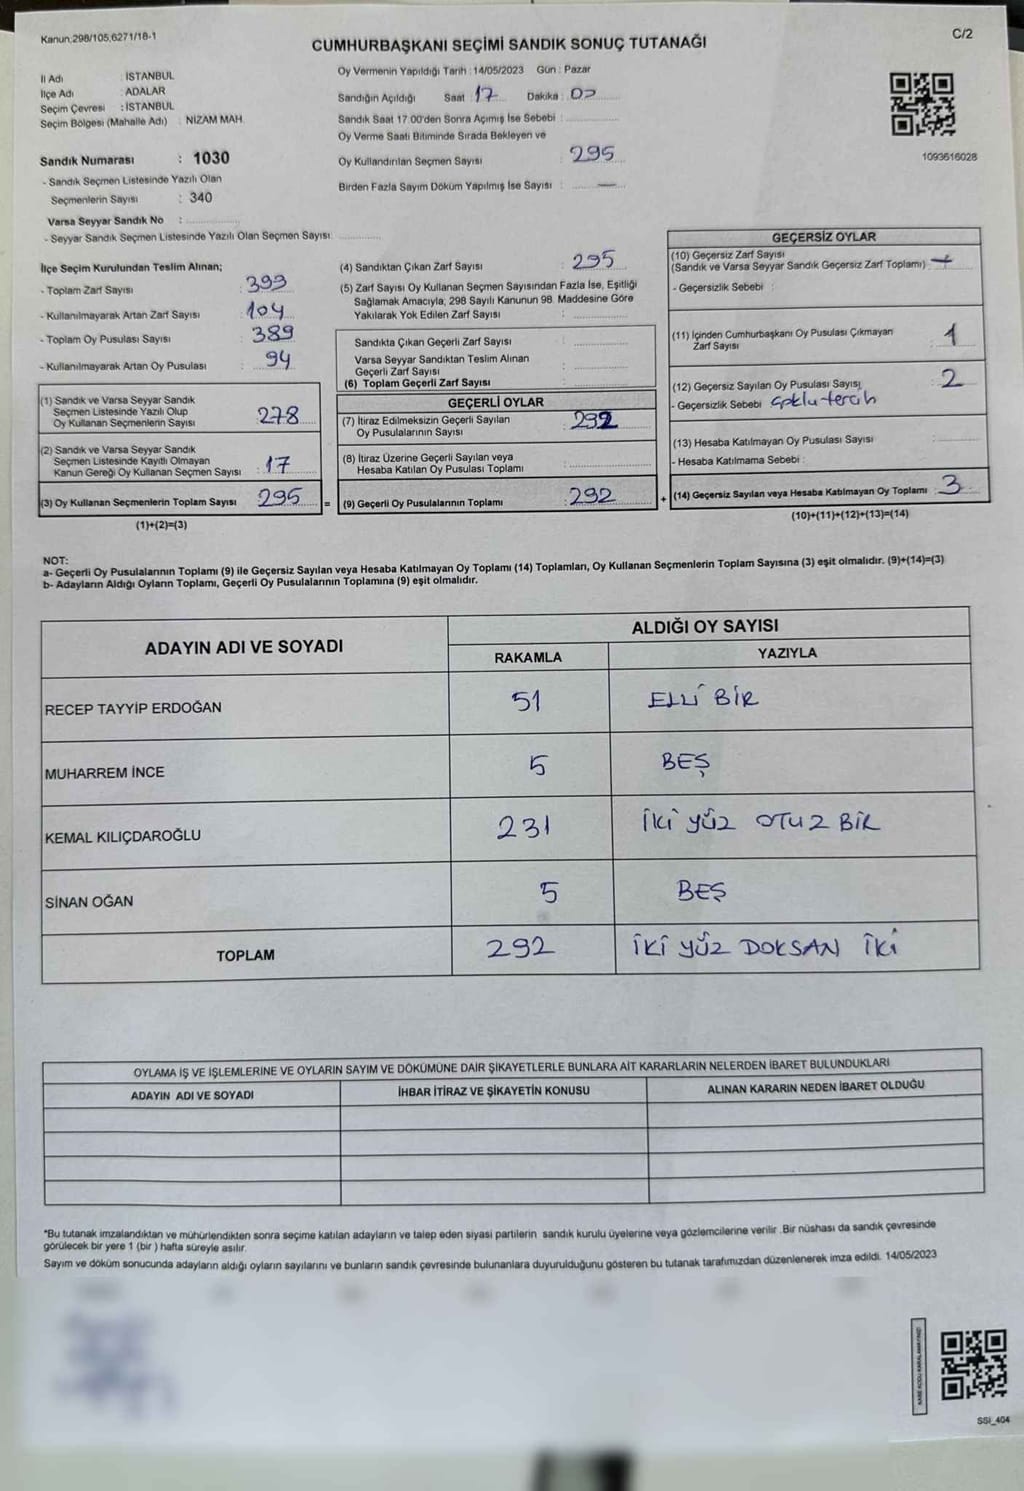 Kanun;298/105,6271/18-1
C/2
CUMHURBAŞKANI SEÇİMİ SANDIK SONUÇ TUTANAĞI
İl Adı : İSTANBUL
İlçe Adı : ADALAR
Seçim Çevresi : İSTANBUL
Seçim Bölgesi (Mahalle Adı) : NİZAM MAH.
Sandık Numarası : 1030
- Sandık Seçmen Listesinde Yazılı Olan
Seçmenlerin Sayısı : 340
Varsa Seyyar Sandık No :
- Seyyar Sandık Seçmen Listesinde Yazılı Olan Seçmen Sayısı:
Oy Vermenin Yapıldığı Tarih : 14/05/2023 Gün : Pazar
Sandığın Açıldığı Saat : 17 Dakika :
Sandık Saat 17:00'den Sonra Açımış İse Sebebi :
Oy Verme Saati Bitiminde Sırada Bekleyen ve
Oy Kullandırılan Seçmen Sayısı : 295
Birden Fazla Sayım Döküm Yapılmış İse Sayısı : —
1093616028
İlçe Seçim Kurulundan Teslim Alınan;
- Toplam Zarf Sayısı : 399
- Kullanılmayarak Artan Zarf Sayısı : 104
- Toplam Oy Pusulası Sayısı : 389
- Kullanılmayarak Artan Oy Pusulası : 94
(1) Sandık ve Varsa Seyyar Sandık
Seçmen Listesinde Yazılı Olup
Oy Kullanan Seçmenlerin Sayısı : 278
(2) Sandık ve Varsa Seyyar Sandık
Seçmen Listesinde Kayıtlı Olmayan
Kanun Gereği Oy Kullanan Seçmen Sayısı : 17
(3) Oy Kullanan Seçmenlerin Toplam Sayısı : 295 =
(1)+(2)=(3)
(4) Sandıktan Çıkan Zarf Sayısı : 295
(5) Zarf Sayısı Oy Kullanan Seçmen Sayısından Fazla İse, Eşitliği
Sağlamak Amacıyla; 298 Sayılı Kanunun 98. Maddesine Göre
Yakılarak Yok Edilen Zarf Sayısı :
Sandıkta Çıkan Geçerli Zarf Sayısı :
Varsa Seyyar Sandıktan Teslim Alınan
Geçerli Zarf Sayısı :
(6) Toplam Geçerli Zarf Sayısı :
GEÇERLİ OYLAR
(7) İtiraz Edilmeksizin Geçerli Sayılan
Oy Pusulalarının Sayısı : 292
(8) İtiraz Üzerine Geçerli Sayılan veya
Hesaba Katılan Oy Pusulası Toplamı :
(9) Geçerli Oy Pusulalarının Toplamı : 292 +
GEÇERSİZ OYLAR
(10) Geçersiz Zarf Sayısı
(Sandık ve Varsa Seyyar Sandık Geçersiz Zarf Toplamı) :
- Geçersizlik Sebebi :
(11) İçinden Cumhurbaşkanı Oy Pusulası Çıkmayan
Zarf Sayısı : 1
(12) Geçersiz Sayılan Oy Pusulası Sayısı : 2
- Geçersizlik Sebebi : çoklu tercih
(13) Hesaba Katılmayan Oy Pusulası Sayısı :
- Hesaba Katılmama Sebebi :
(14) Geçersiz Sayılan veya Hesaba Katılmayan Oy Toplamı : 3
(10)+(11)+(12)+(13)=(14)
NOT:
a- Geçerli Oy Pusulalarının Toplamı (9) ile Geçersiz Sayılan veya Hesaba Katılmayan Oy Toplamı (14) Toplamları, Oy Kullanan Seçmenlerin Toplam Sayısına (3) eşit olmalıdır. (9)+(14)=(3)
b- Adayların Aldığı Oyların Toplamı, Geçerli Oy Pusulalarının Toplamına (9) eşit olmalıdır.
ADAYIN ADI VE SOYADI
ALDIĞI OY SAYISI
RAKAMLA YAZIYLA
RECEP TAYYİP ERDOĞAN 51 ELLİ BİR
MUHARREM İNCE 5 BEŞ
KEMAL KILIÇDAROĞLU 231 İKİ YÜZ OTUZ BİR
SİNAN OĞAN 5 BEŞ
TOPLAM 292 İKİ YÜZ DOKSAN İKİ
OYLAMA İŞ VE İŞLEMLERİNE VE OYLARIN SAYIM VE DÖKÜMÜNE DAİR ŞİKAYETLERLE BUNLARA AİT KARARLARIN NELERDEN İBARET BULUNDUKLARI
ADAYIN ADI VE SOYADI İHBAR İTİRAZ VE ŞİKAYETİN KONUSU ALINAN KARARIN NEDEN İBARET OLDUĞU
*Bu tutanak imzalandıktan ve mühürlendikten sonra seçime katılan adayların ve talep eden siyasi partilerin sandık kurulu üyelerine veya gözlemcilerine verilir .Bir nüshası da sandık çevresinde
görülecek bir yere 1 (bir ) hafta süreyle asılır.
Sayım ve döküm sonucunda adayların aldığı oyların sayılarını ve bunların sandık çevresinde bulunanlara duyurulduğunu gösteren bu tutanak tarafımızdan düzenlenerek imza edildi. 14/05/2023
KARE KODU KARALAMAYINIZ!
SSI_404